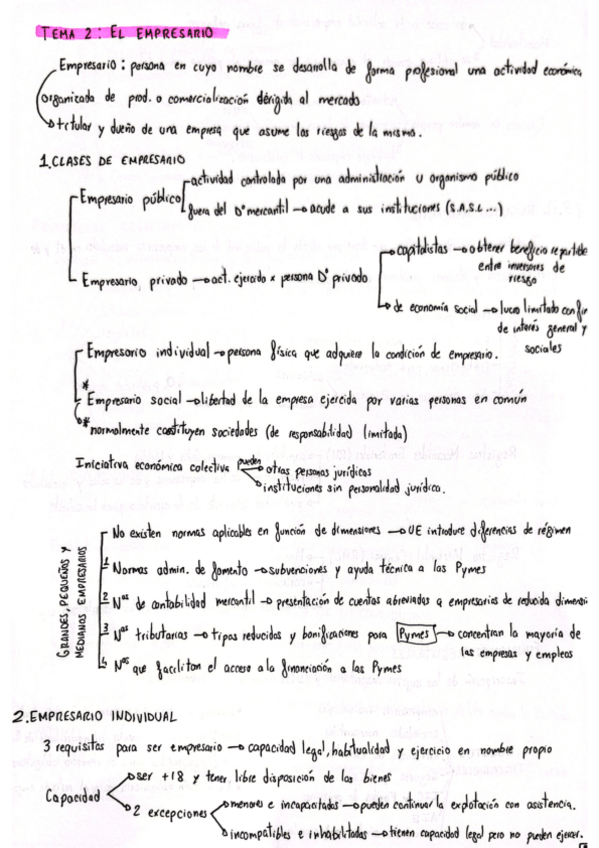 TEMA 2: EL EMPRESARIO
Empresario: persona en cuyo nombre se desarrolla de forma profesional una actividad económica
organizada de prod. o comercialización dirigida al mercado
titular y dueño de una empresa que asume los riesgos de la misma.
1. CLASES DE EMPRESARIO
Empresario público
actividad controlada por una administración u organismo público
fuera del Dº mercantil → acude a sus instituciones (S.A, S.L ...)
Empresario privado → act. ejercida x persona Dº privado
capitalistas → obtener beneficio repartible
entre inversores de
riesgo
de economía social → lucro limitado con fin
de interés general y
sociales
Empresario individual → persona física que adquiere la condición de empresario.
* Empresario social → libertad de la empresa ejercida por varias personas en común
* normalmente constituyen sociedades (de responsabilidad) limitada)
Iniciativa económica colectiva pueden
→ otras personas jurídicas
→ instituciones sin personalidad jurídica.
GRANDES, PEQUEÑOS Y
MEDIANOS EMPRESARIOS
No existen normas aplicables en función de dimensiones → UE introduce diferencias de régimen
1 Normas admin. de fomento → subvenciones y ayuda técnica a las Pymes
2 Nas de contabilidad mercantil → presentación de cuentas abreviadas a empresarios de reducida dimensi
3 Nas tributarias → tipos reducidos y bonificaciones para Pymes → concentran la mayoría de
las empresas y empleos
4 Nas que facilitan el acceso a la financiación a las Pymes
2. EMPRESARIO INDIVIDUAL
3 requisitos para ser empresario → capacidad legal, habitualidad y ejercicio en nombre propio
Capacidad
→ ser +18 y tener libre disposición de los bienes
→ 2 excepciones
→ menores e incapacitados → pueden continuar la explotación con asistencia.
→ incompatibles e inhabilitados → tienen capacidad legal pero no pueden ejercer.